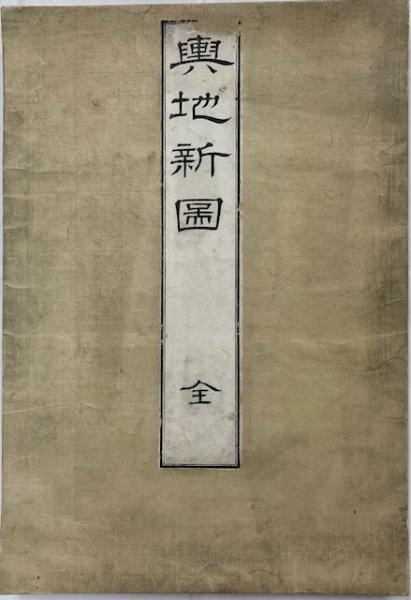 輿地新圖 全